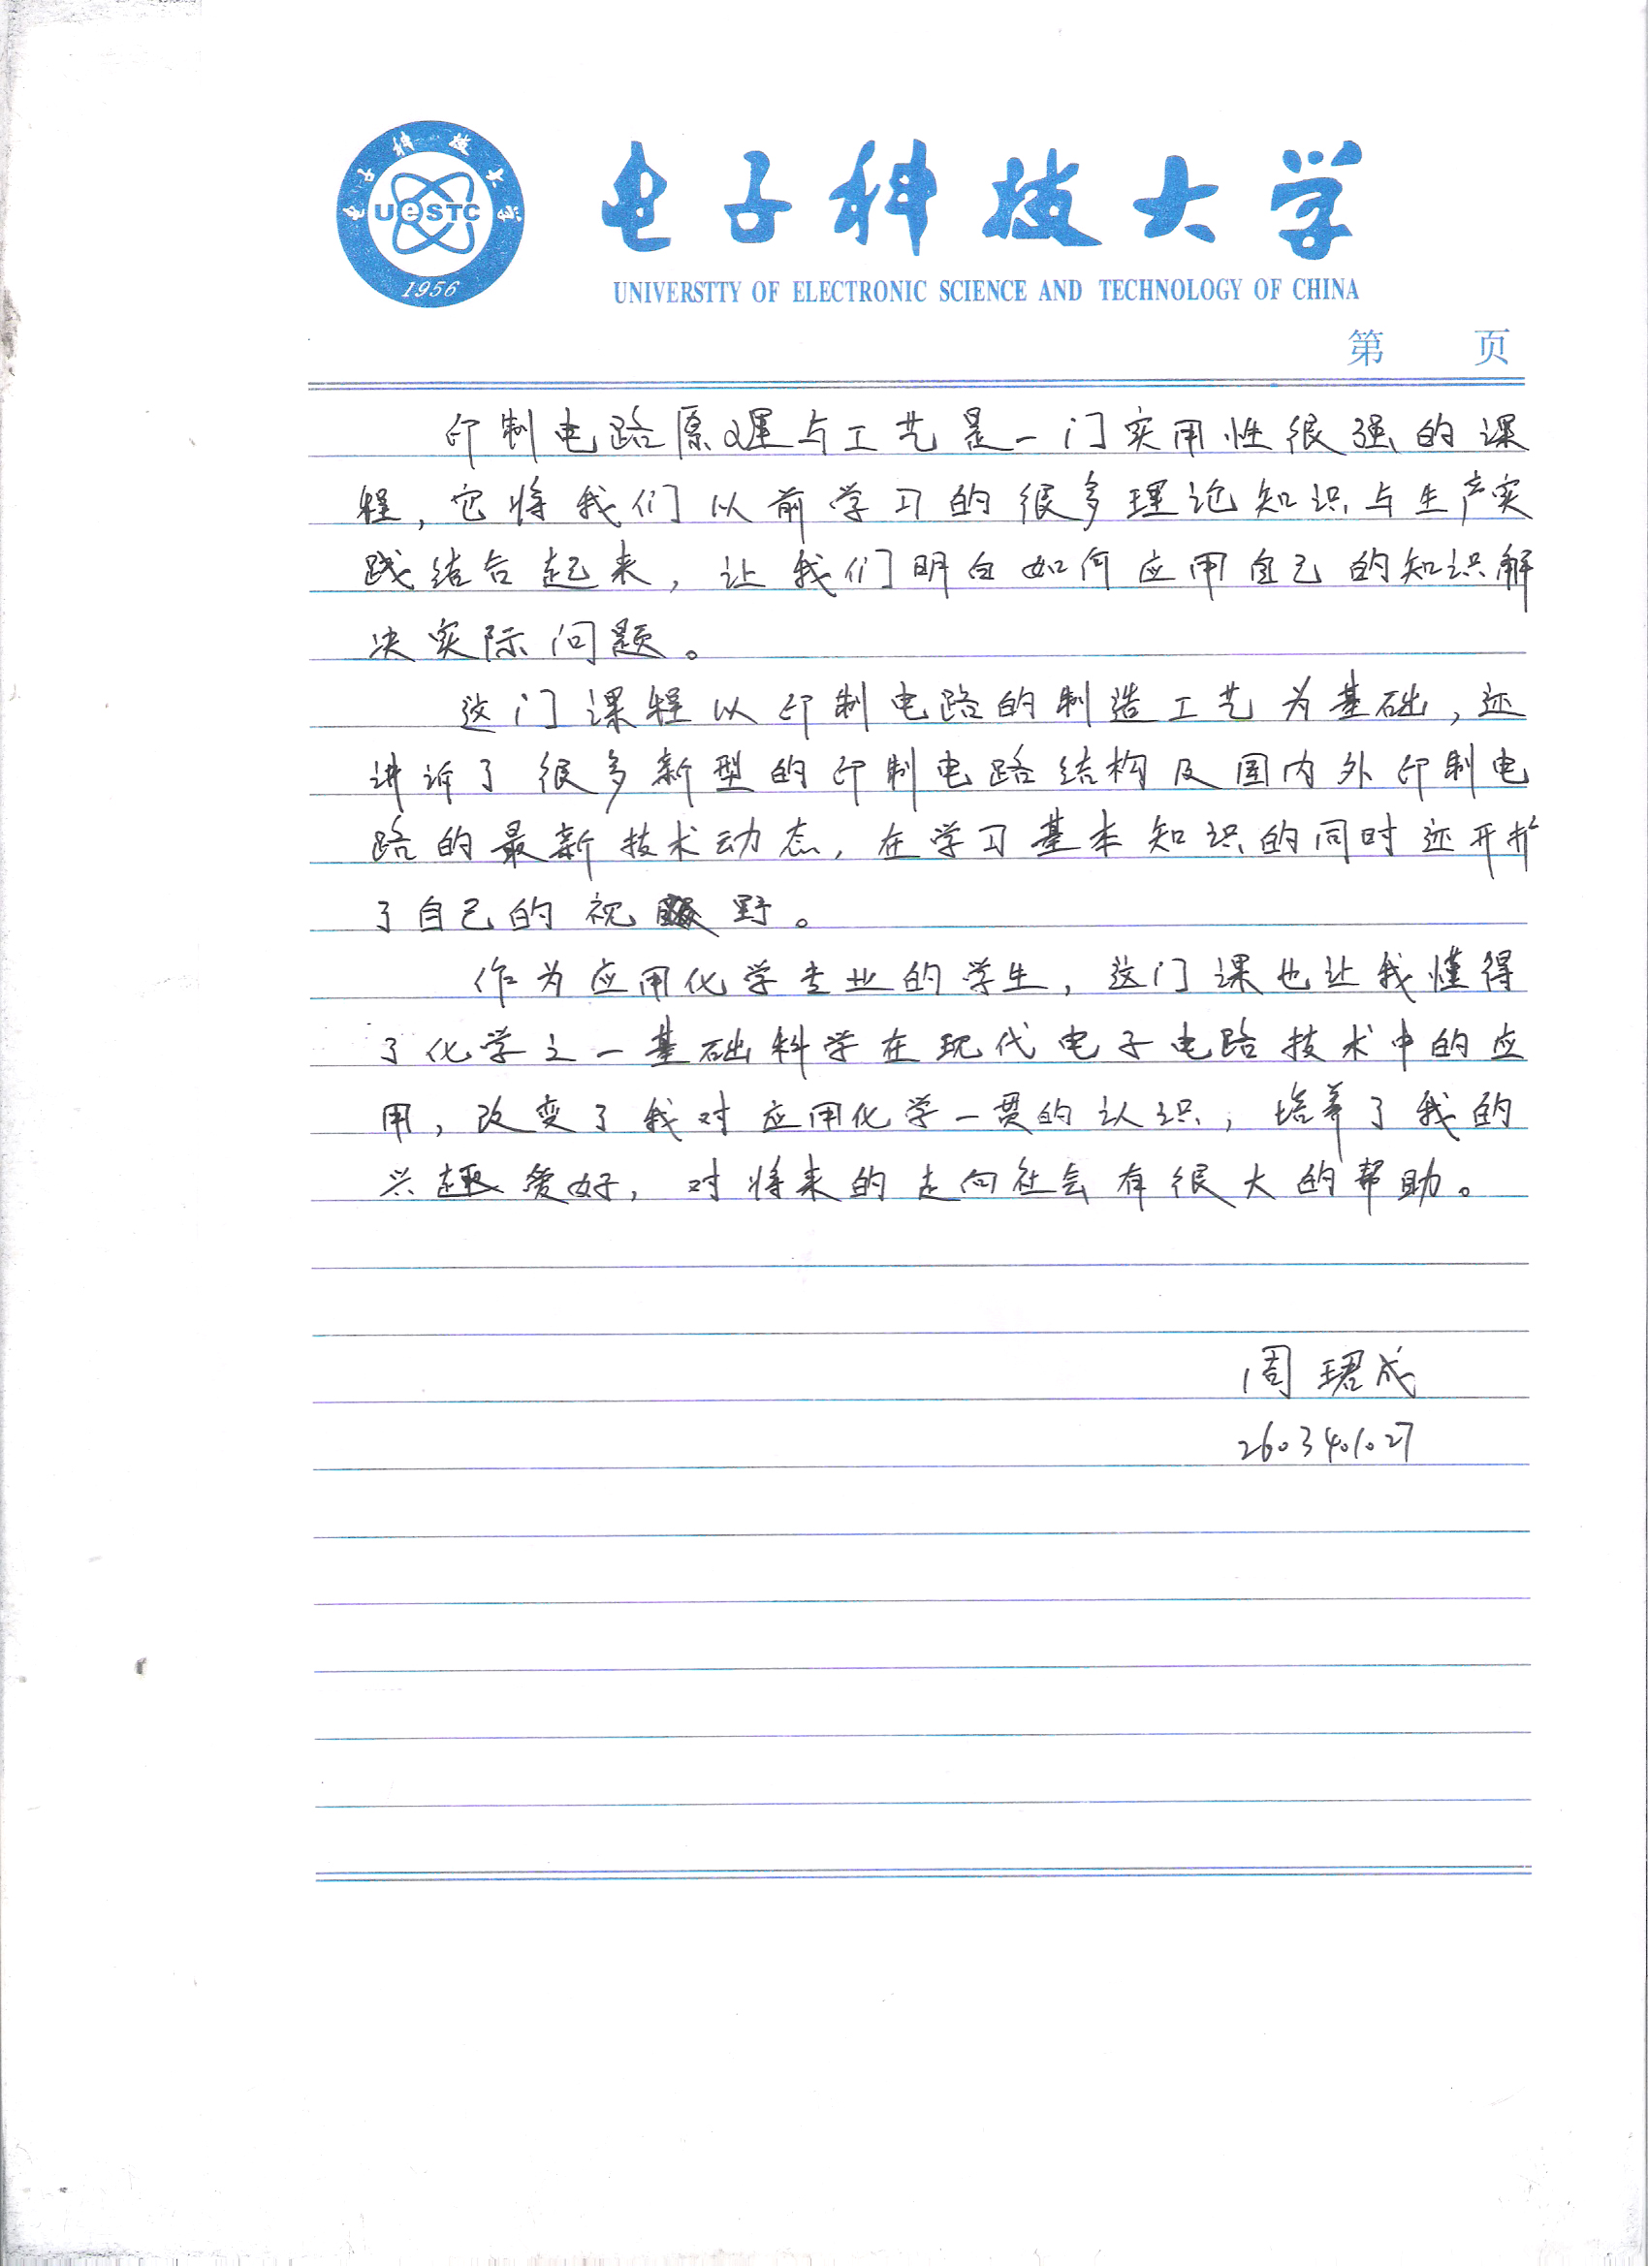 电子科技大学
UeSTC
1956
电子科技大学
UNIVERSTTY OF ELECTRONIC SCIENCE AND TECHNOLOGY OF CHINA
第 页
印制电路原理与工艺是一门实用性很强的课
程,它将我们以前学习的很多理论知识与生产实
践结合起来,让我们明白如何应用自己的知识解
决实际问题。
这门课程以印制电路的制造工艺为基础,还
讲诉了很多新型的印制电路结构及国内外印制电
路的最新技术动态,在学习基本知识的同时还开扩
了自己的视野。
作为应用化学专业的学生,这门课也让我懂得
了化学之一基础科学在现代电子电路技术中的应
用,改变了我对应用化学一贯的认识,培养了我的
兴趣爱好,对将来的走向社会有很大的帮助。
周珺成
2603401027